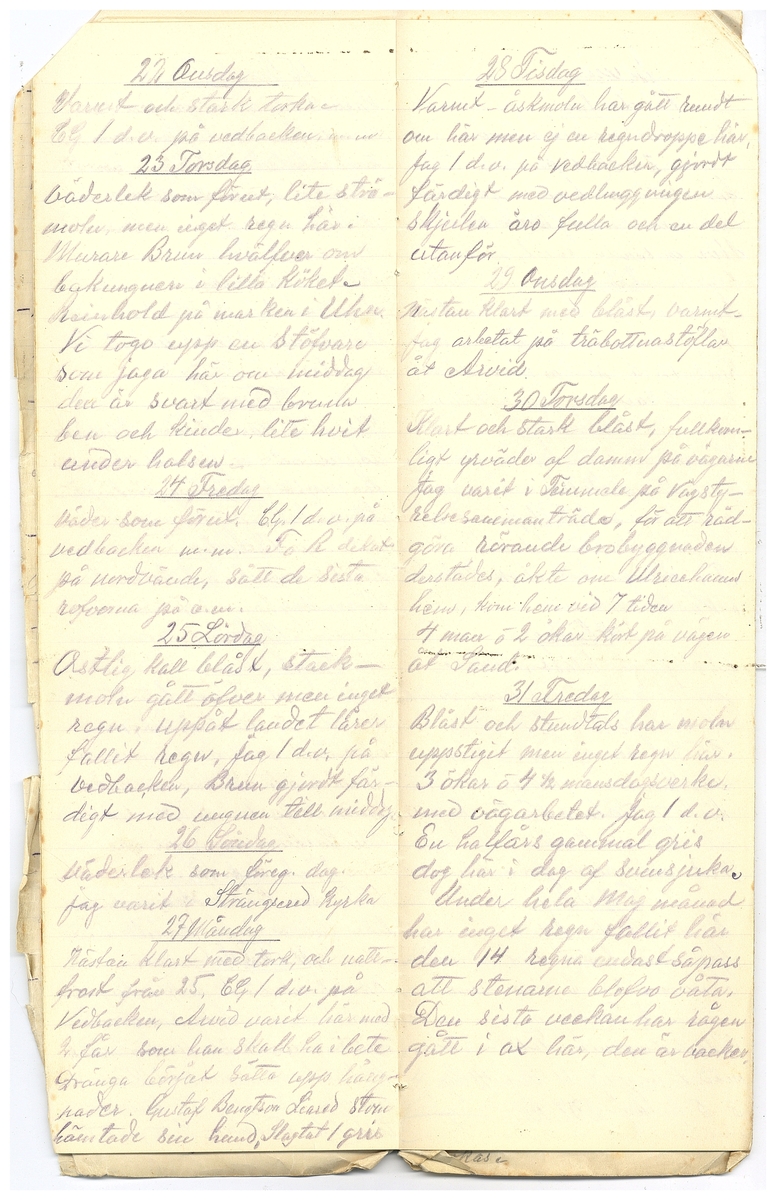 22 Onsdag
Varmt och stark torka
CG 1 d.v. på vedbacken m.m
23 Torsdag
Väderlek som förut, lite strö-
moln, men inget regn här.
Murare Brun hwälfver om
bakungnen i lilla köket.
Reinhold på marken i Uhn.
Vi togo upp en Stöfvare
som jaga här om middag
den är svart med bruna
ben och kinder, lite hvit
under halsen
24 Fredag
Väder som förut. CG 1 d.v. på
vedbacken m.m.
på nordvände, sått de sista
rofvorna på a.m.
25 Lördag
Ostlig kall blåst, stack-
moln gått öfver men inget
regn. uppåt landet lärer
fallit regn, Jag 1 d.v. på
vedbacken, Brun gjordt fär-
digt med ungnen till middag
26 Söndag
Väderlek som föreg. dag.
jag varit i Strängsered Kyrka
27 Måndag
Nästan klart med tork, och natt-
frost från 25, CG 1 d.v. på
Vedbacken, Arvid varit här med
2 får som han skall ha i bete
Dränga börjat sätta upp häng-
nader. Gustaf Bengtson Liared Stom
hämtade sin hund, Slagtat 1 gris
28 Tisdag
Varmt - åskmoln har gått rundt
om här men ej en regndroppe här,
Jag 1 d.v. på vedbacken, gjordt
färdigt med vedlinggningen
Skjulen äro fulla och en del
utanför.
29 Onsdag
Nästan klart med blåst, varmt-
Jag arbetat på träbottnastöflar
åt Arvid
30 Torsdag
Klart och stark blåst, fullkom-
ligt yrväder af damm på vägarne
Jag varit i Tummale på Vägsty-
relsesammanträde, för att råd-
göra rörande brobyggnaden
derstädes, åkte om Ulricehamn
hem, kom hem vid 7 tiden
4 man o 2 ökar kört på vägen
åt Sand.
31 Fredag
Blåst och stundtals har moln
uppstiget men inget regn här.
3 ökar o 4 ½ mansdagsverke
med vägarbetet. Jag 1 d.v.
En halfårs gammal gris
dog här i dag af svinsjuka.
Under hela Maj månad
har inget regn fallit här
den 14 regna endast såpass
att stenarne blefvo våta.
Den sista veckan har rågen
gått i ax här, den är vacker,